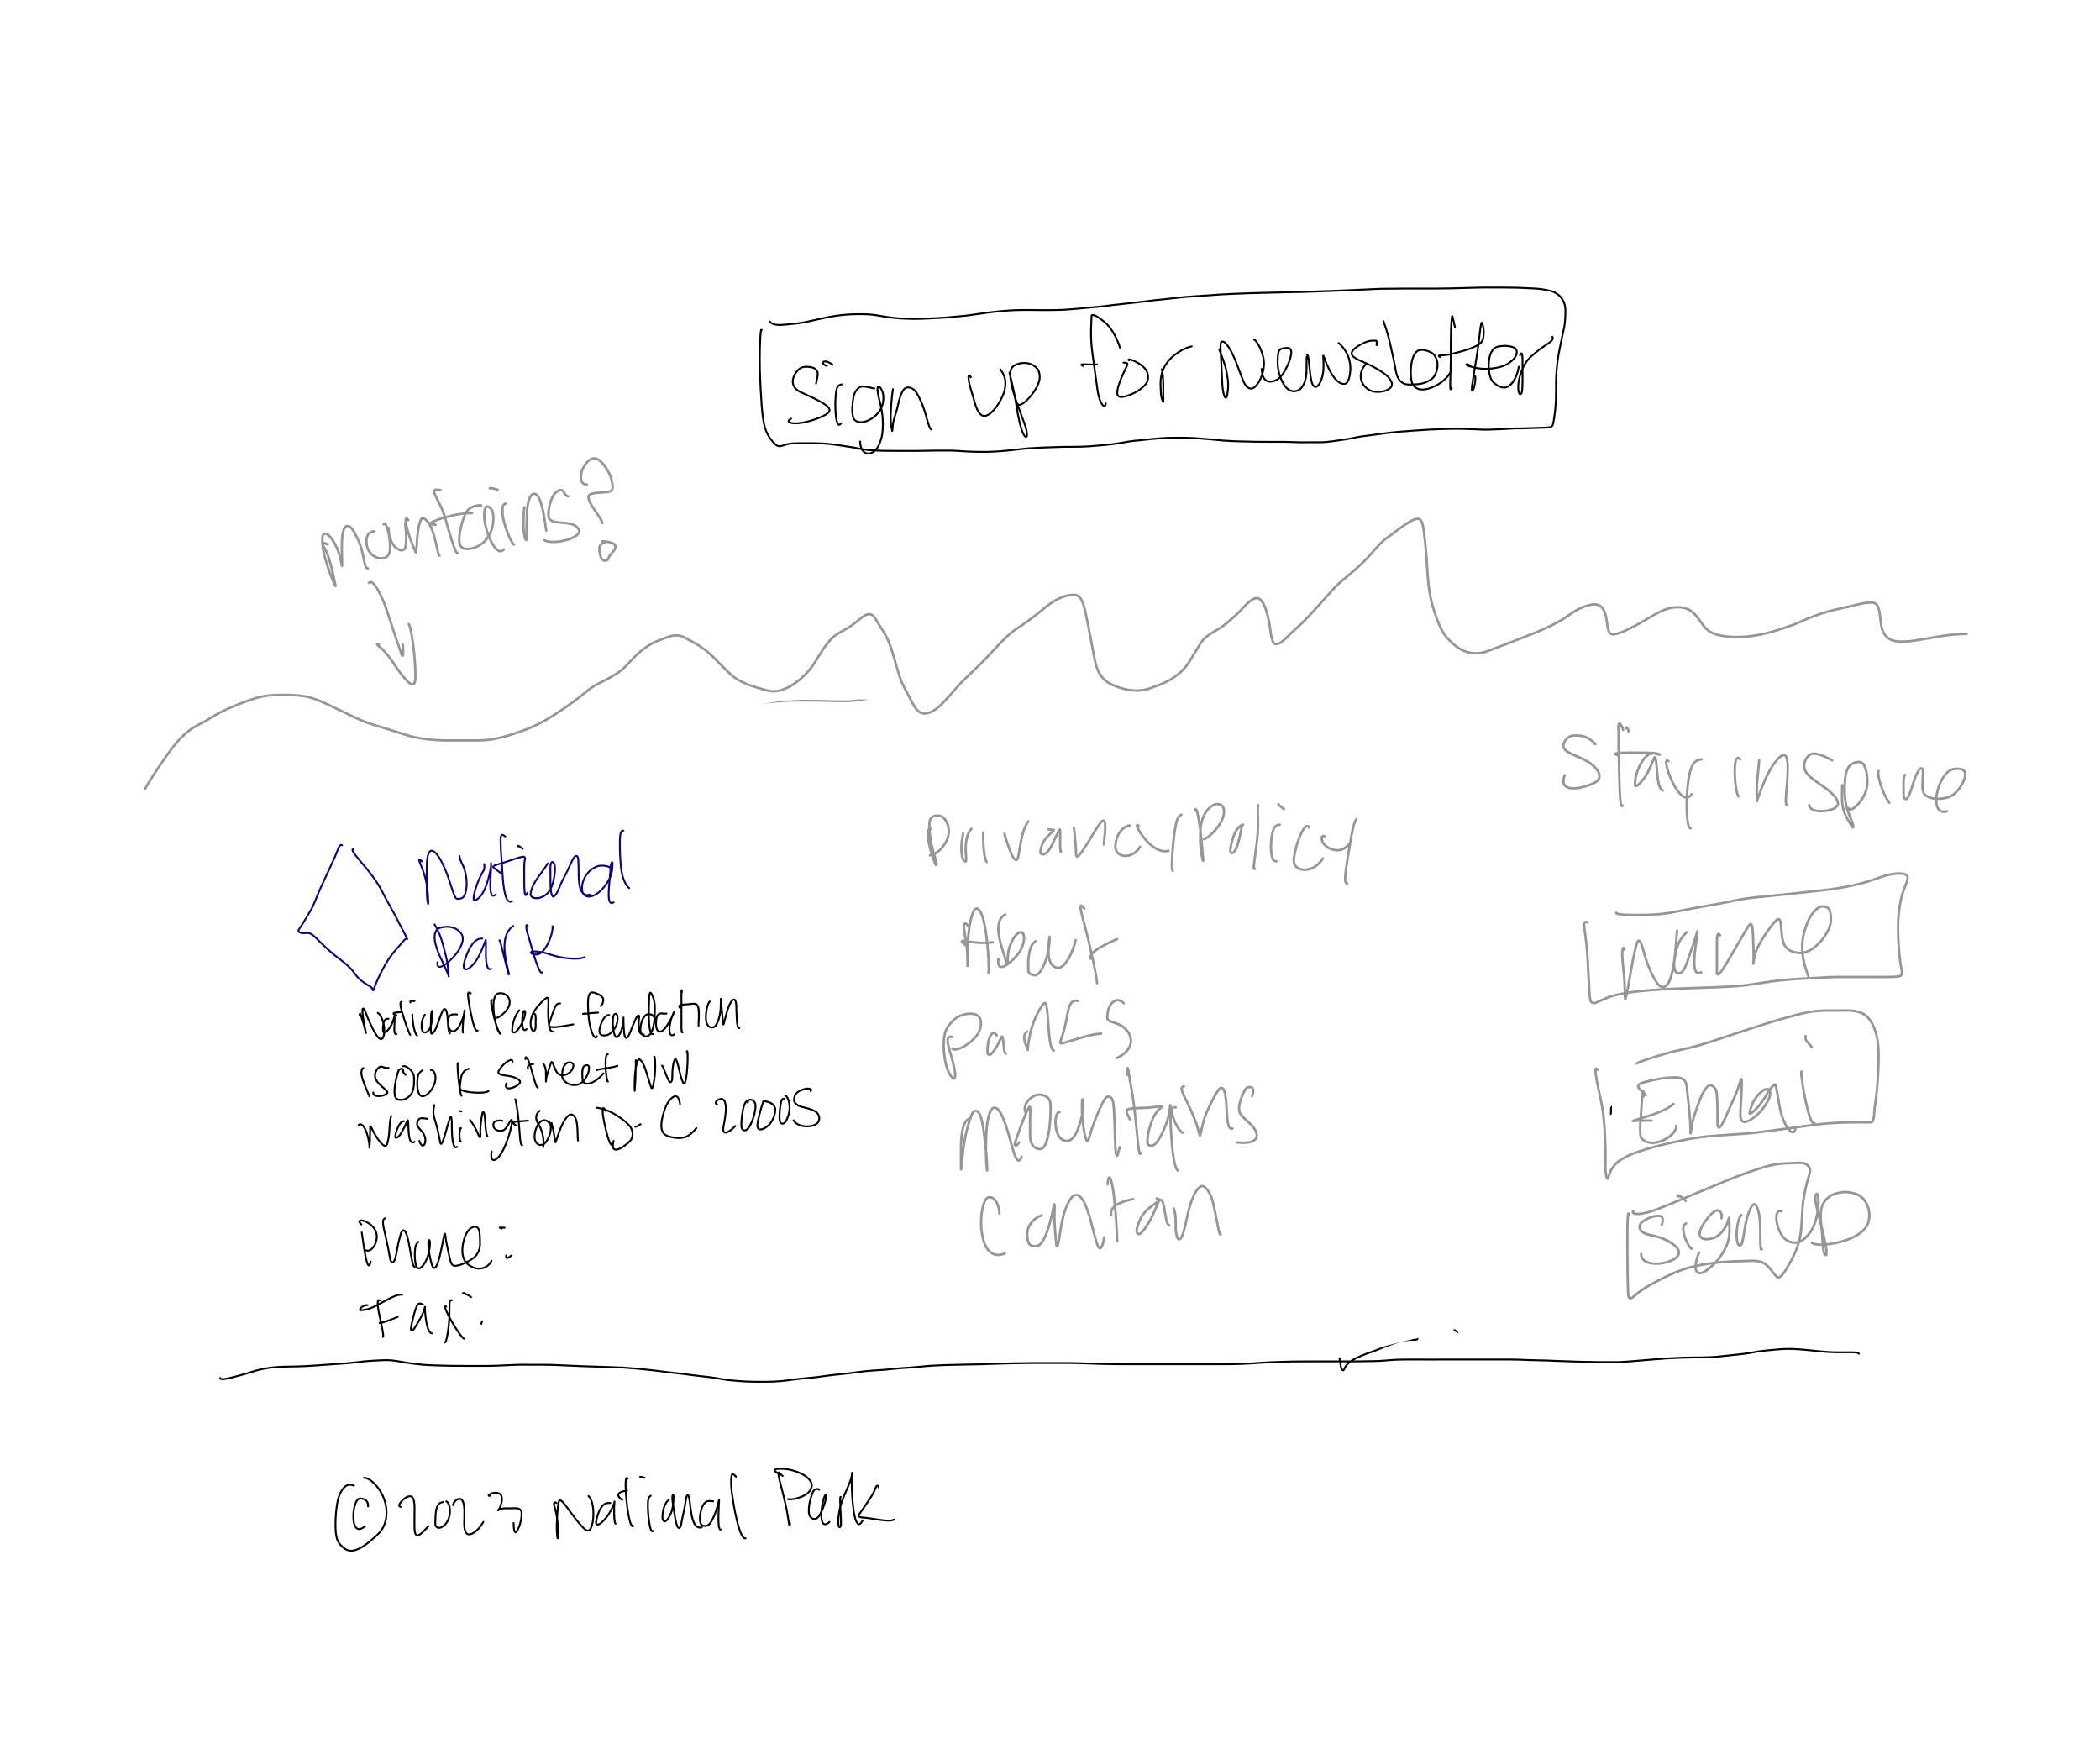 Sign up for Newsletter
Mountains?
National
Park
National Park Foundation
1500 K street NW
Washington D.C 2005
Phone:
Fax:
Privancy Policy
About
Parks
Mountains
Contan
Stay inspire
name
Email
Signup
© 2023 National Park